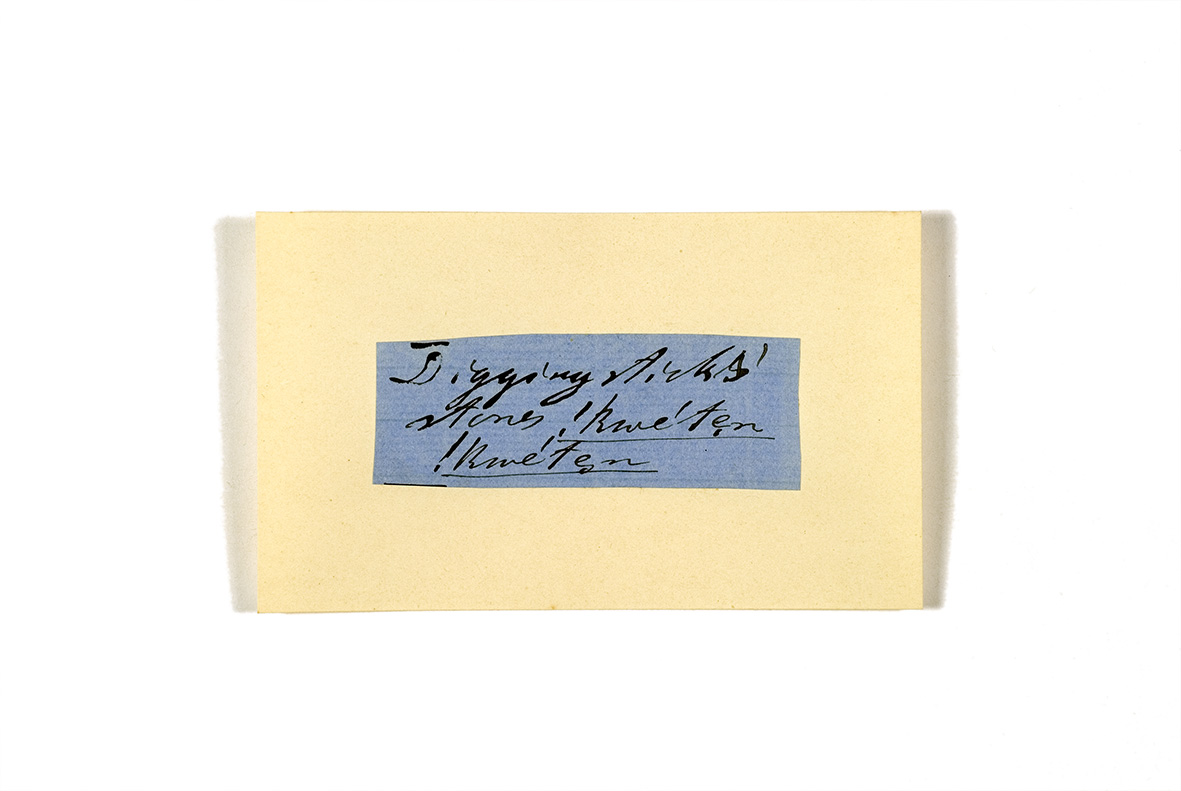 Digging sticks'
stones, !kwé'tẹn
!kwé'tẹn